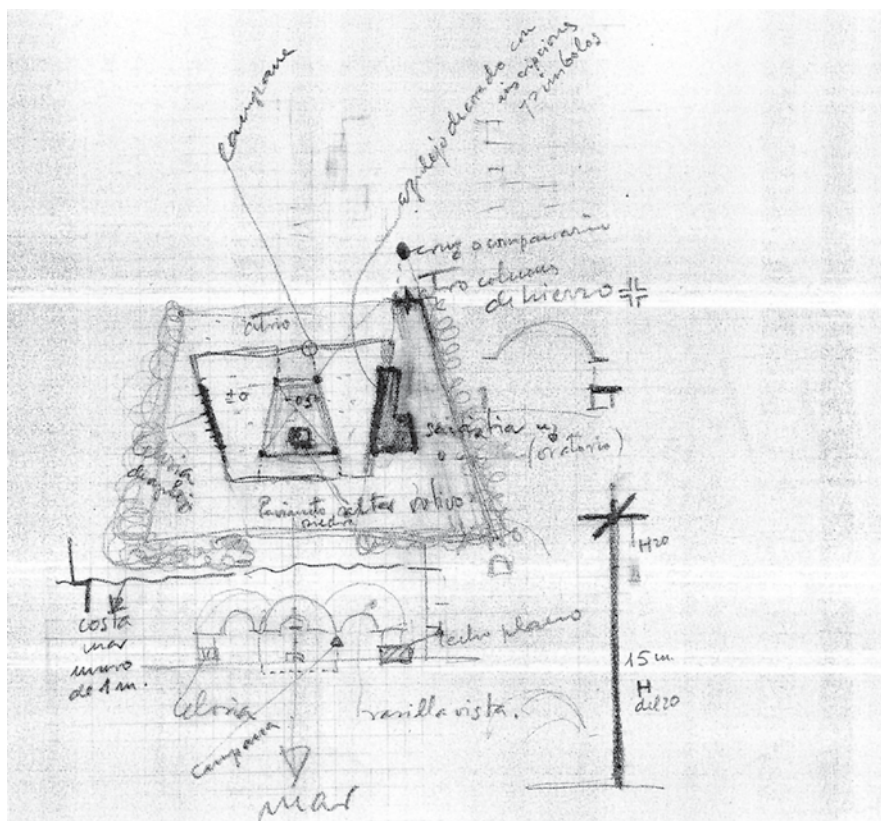 campana
azulejo decorado con
inscripciones
y símbolos
cruz o campanario
columnas
de hierro
atrio
±0
-0.5
sacristia
o
(oratorio)
celosia
Pavimento
piedra
altar votivo
H20
costa
mar
muro
de 1 m.
techo plano
15 m.
H
del 20
celosia
ladrilla vista.
campana
mar